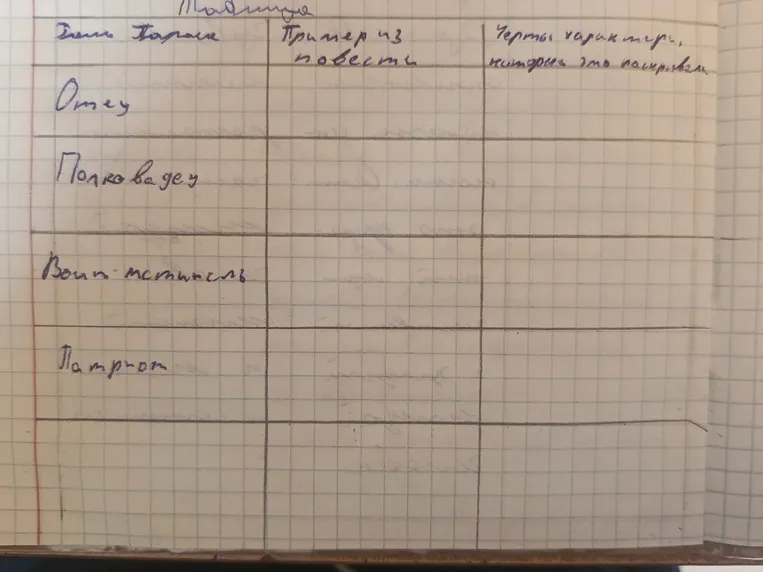 Таблица
Роль Тараса
Пример из
повести
Черты характера,
которые это раскрывает
Отец
Полководец
Воин-мститель
Патриот